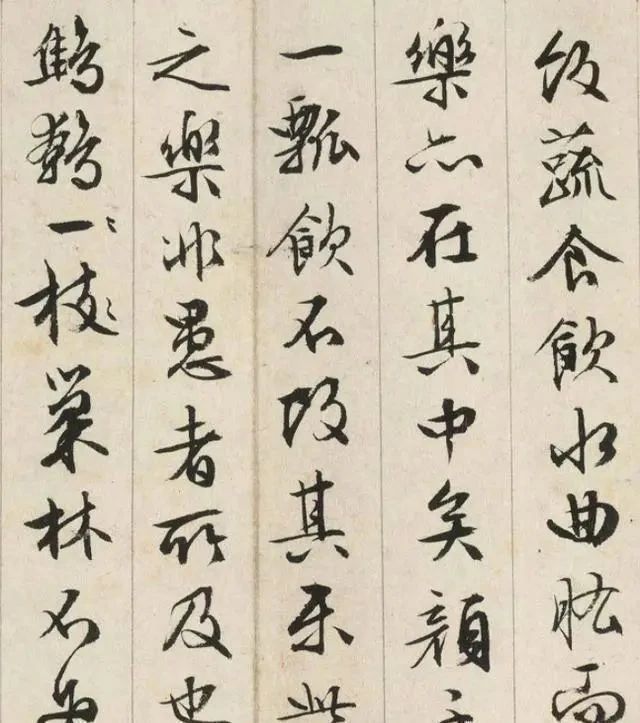 飯蔬食飲水曲肱而
樂亦在其中矣顔子
一瓢飲不改其樂此
之樂非愚者所及也
鷦鷯一枝巢林不